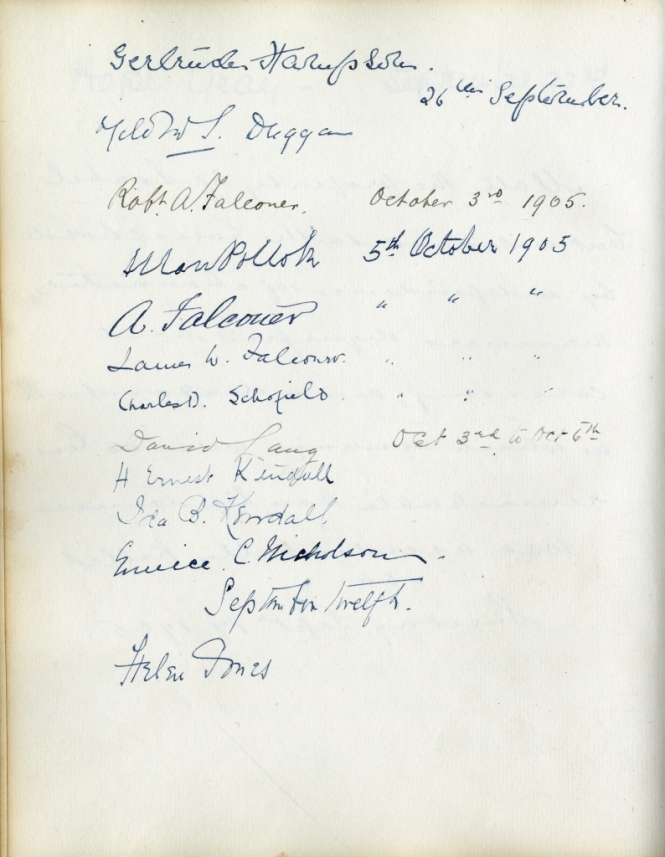 Gertrude Hampson.
26th September.
S. Duggan
Robt. A. Falconer. October 3rd 1905.
Allan Pollok 5th October 1905
A. Falconer " " "
James W. Falconer. " " "
Charles D. Schofield. " " "
David Lang Oct 3rd to Oct 6th
H Ernest Kendall
Ida B. Kendall
Eunice. C. Nicholson.
September twelfth.
Helen Jones